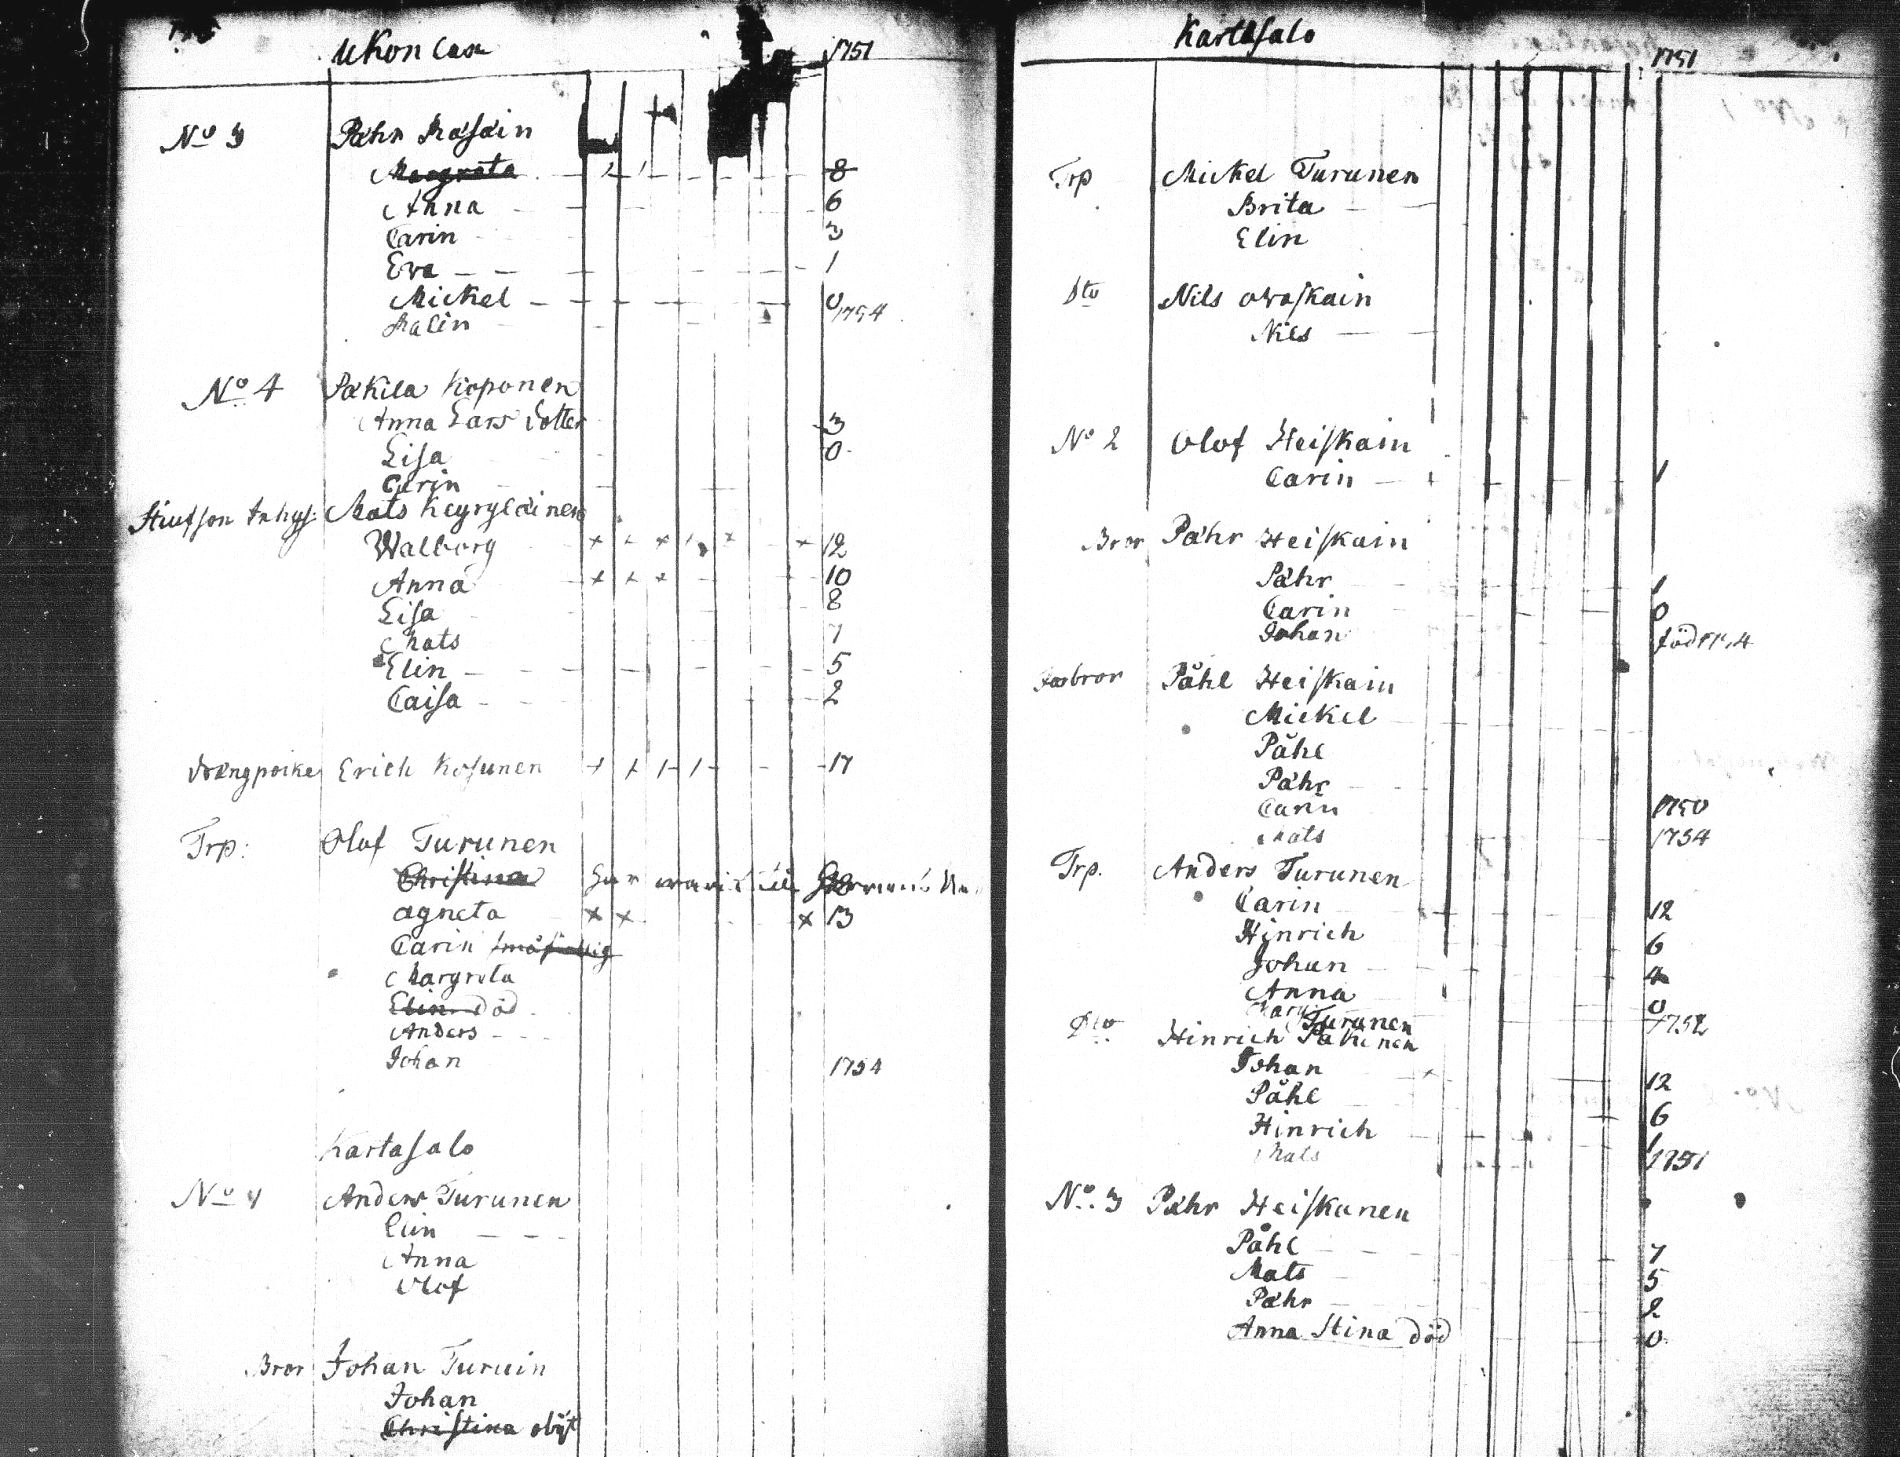 Ukon 1751
No 3 Påhr
Margreta 8
Anna 6
Carin 3
Eva 1
Mickel 0
Malin 1754
No 4 Påkila Koponen
Anna Lars dotter 3
Lisa 0
Carin
Mats
Walborg 12
Anna 10
Lisa 8
Mats 7
Elin 5
Caisa 2
Drängpoike Erich Kosunen 17
Trp: Olof Turunen
Christina
agneta 13
Carin
Margreta
Elin död
Anders
Johan 1754
Kartasalo
No 1 Anders Turunen
Elin
Anna
Olof
Bror Johan Turuin
Johan
Christina
Kartasalo 1751
Trp Mickel Turunen
Brita
Elin
Dto Nils
Nils
No 2 Olof Heiskain
Carin 1
Bror Påhr Heiskain
Påhr 1
Carin 0
Johan
Farbror Påhl Heiskain
Mickel
Påhl
Påhr
Carin 1750
Mats 1754
Trp. Anders Turunen
Carin 12
Hinrich 6
Johan 4
Anna 0
Turunen 1752
Dto Hinrich
Johan 12
Påhl 6
Hinrich 1
Mats 1751
No. 3 Påhr Heiskanen
Påhl 7
Mats 5
Påhr 2
Anna Stina död 0